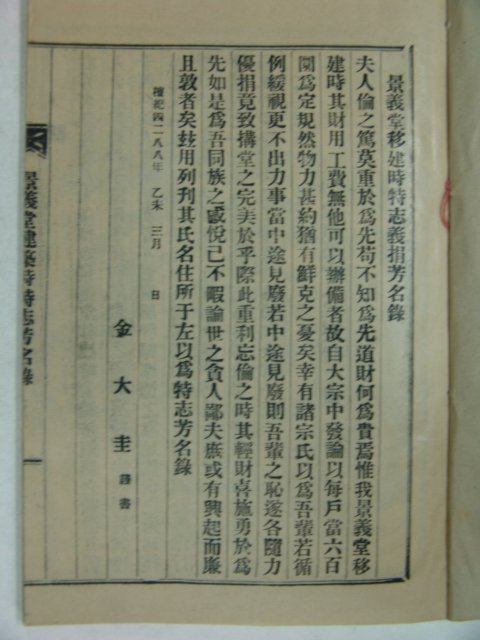 景義堂移建時特志義捐芳名錄
夫人倫之篤莫重於爲先苟不知爲先道財何爲貴焉惟我景義堂移
建時其財用工費無他可以辦備者故自大宗中發論以每戶當六百
圜爲定規然物力甚約猶有鮮克之憂矣幸有諸宗氏以爲吾輩若循
例緩視更不出力事當中途見廢若中途見廢則吾輩之恥遂各隨力
優捐竟致搆堂之完美於乎際此重利忘倫之時其輕財喜施勇於爲
先如是爲吾同族之感悅已不暇論世之貪人鄙夫庶或有興起而廉
且敦者矣玆用列刊其氏名住所于左以爲特志芳名錄
檀紀四二八八年 乙未 三月 日
金大圭 謹書
景義堂建築時特志芳名錄